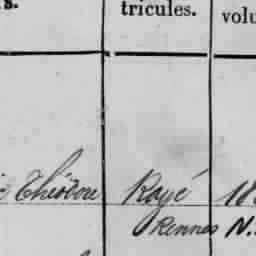 tricules. volu
Théodore Rayé 18
Rennes N.